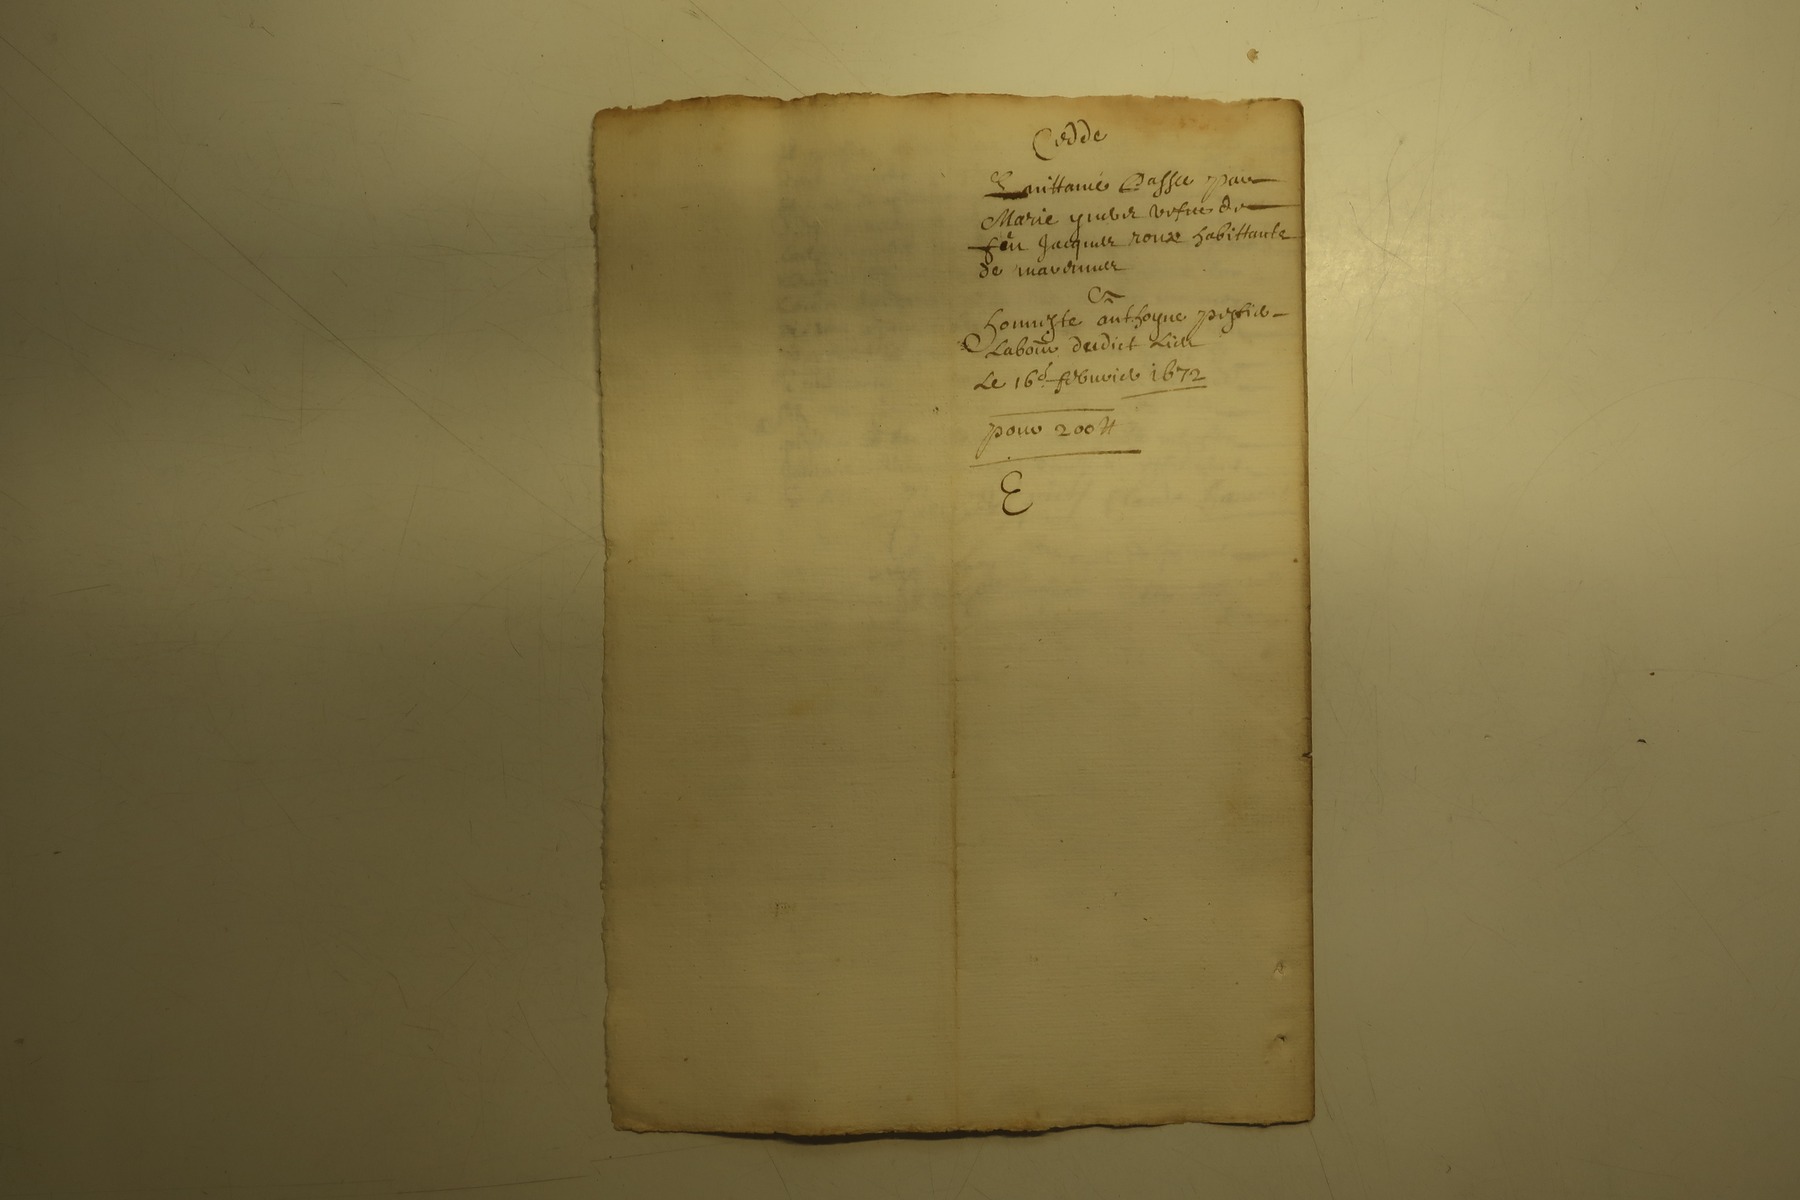 Cedde
Quittance Passee par
Marie ymber vefue de
feu Jacques roux habittante
de
A
honneste anthoyne
Labour dudict Lieu
Le 16e febvrier 1672
pour 200 tt
E